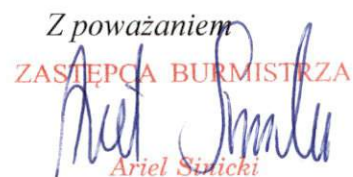 Z poważaniem
ZASTĘPCA BURMISTRZA
Ariel Sinicki